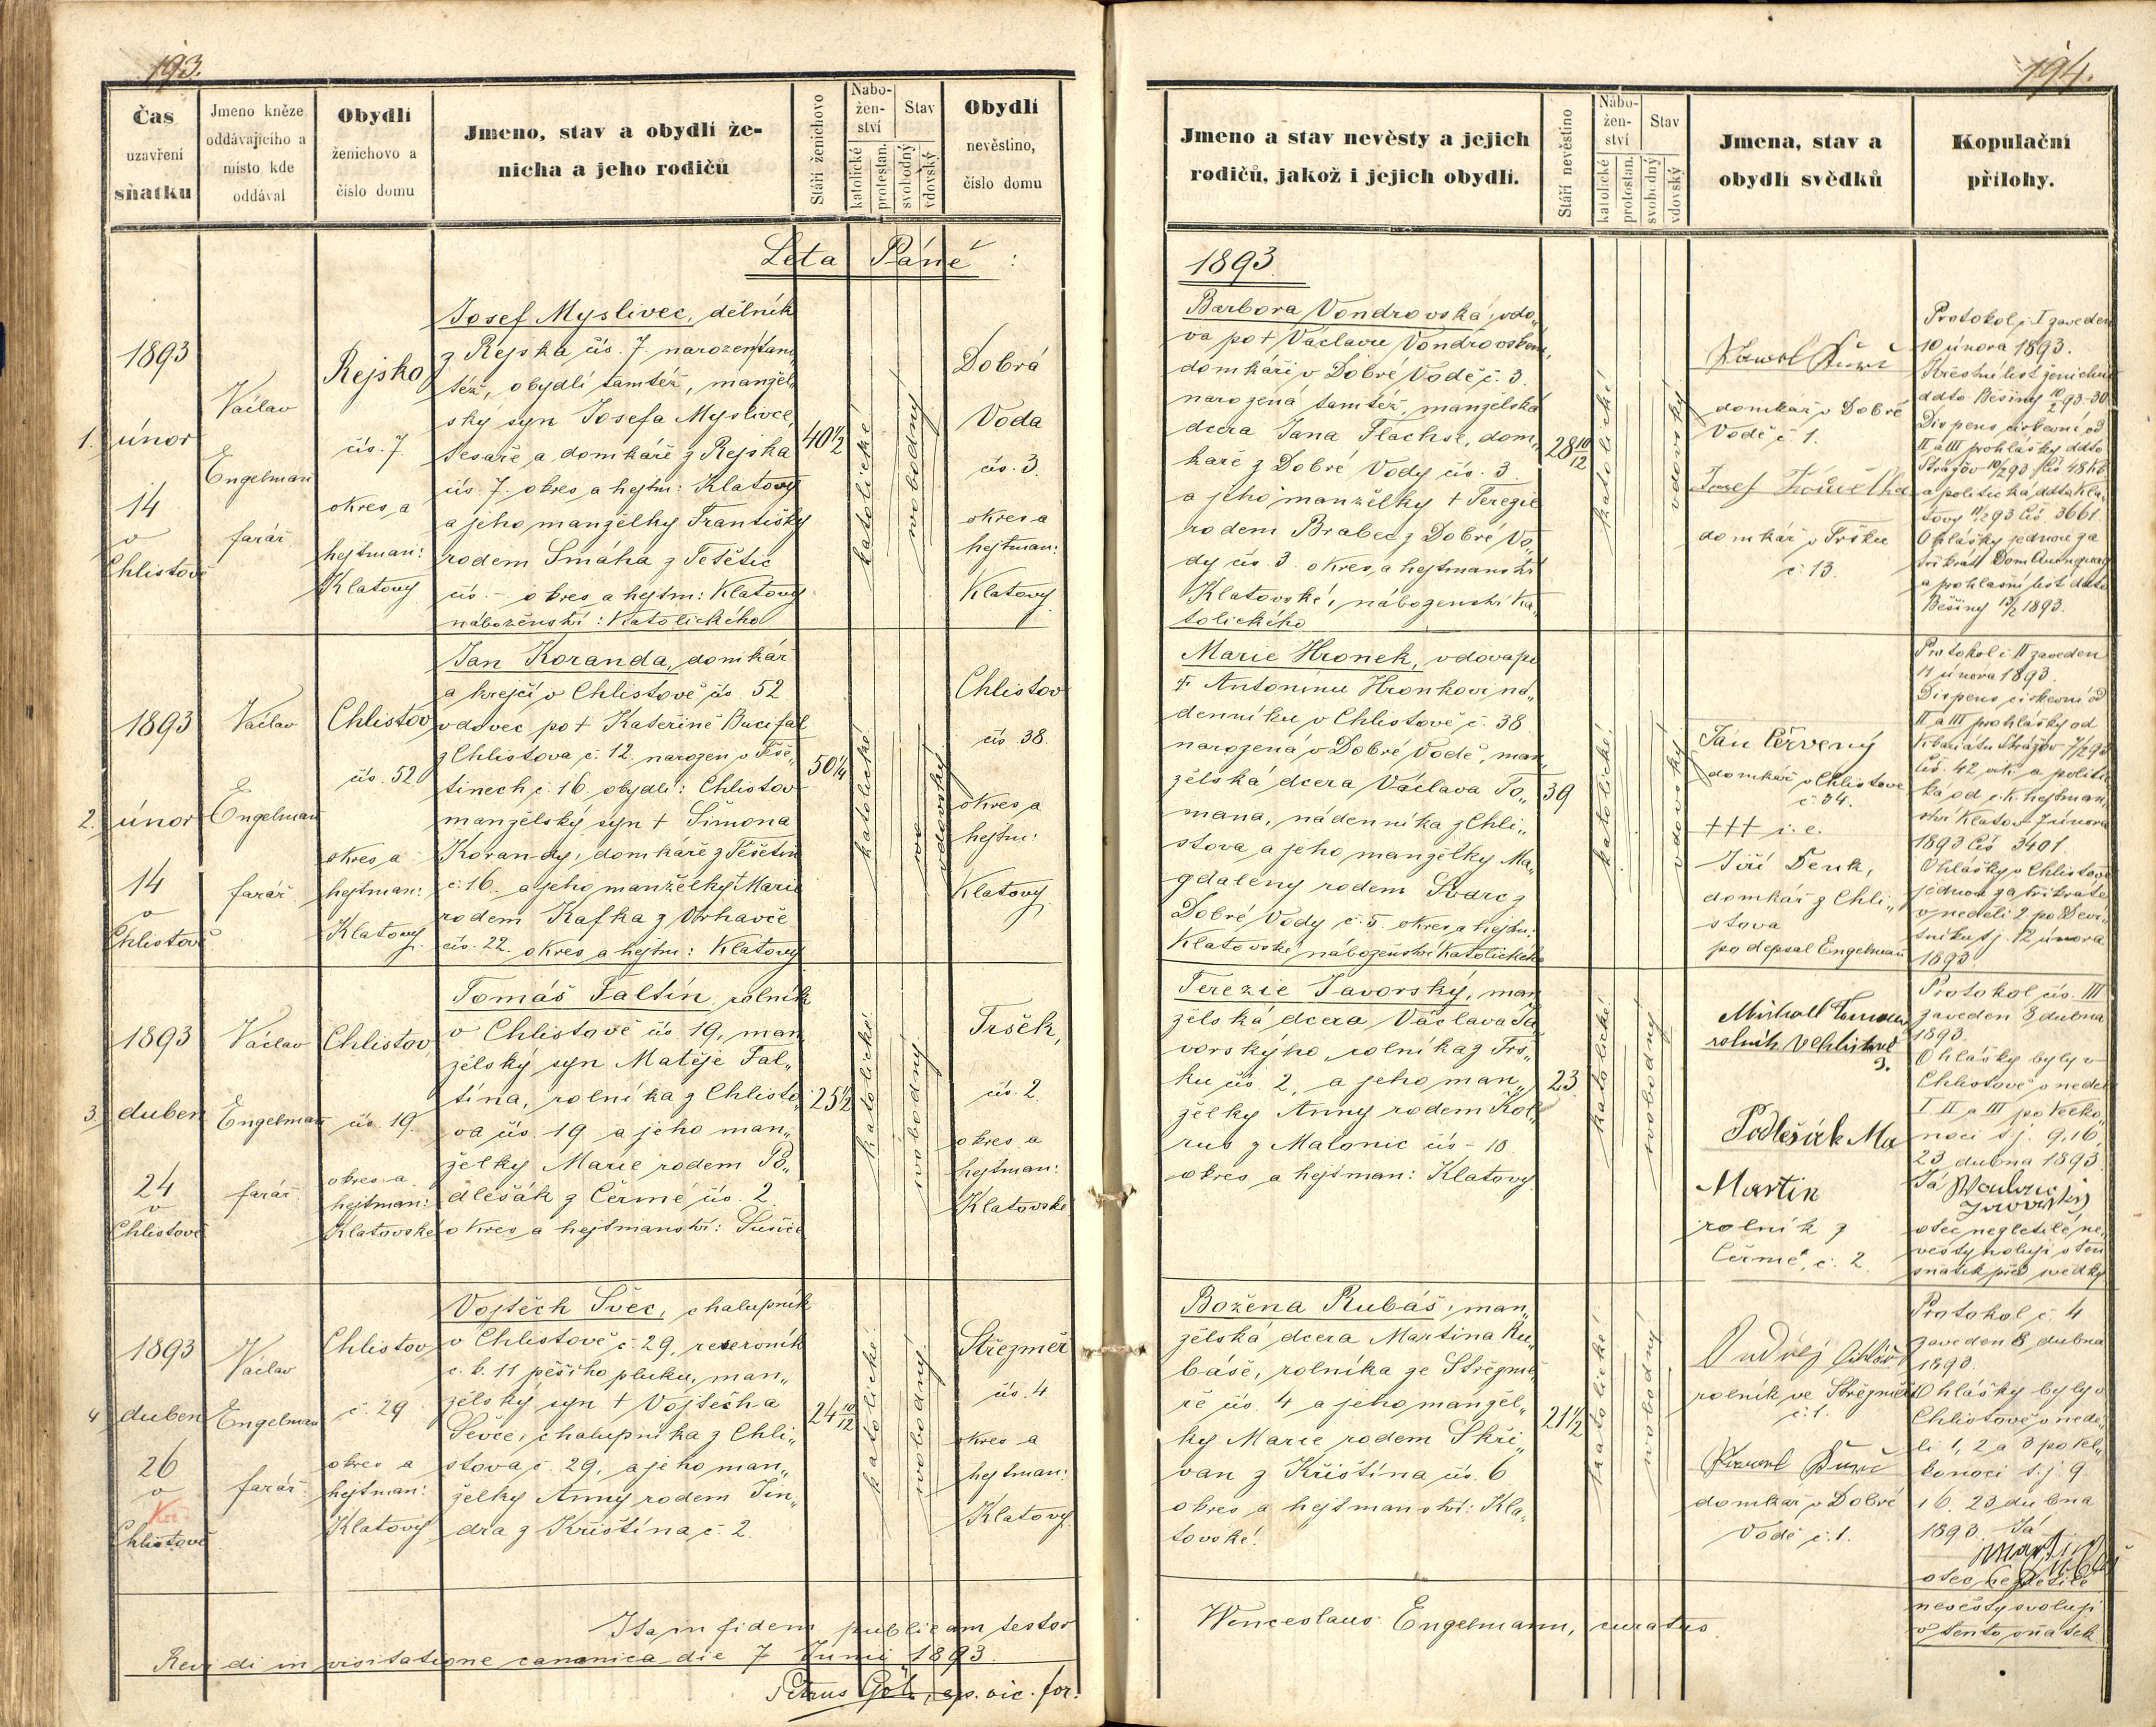 193.
Čas
uzavření
sňatku
Jmeno kněze
oddávajícího a
místo kde
oddával
Obydlí
ženichovo a
číslo domu
Jmeno, stav a obydlí že-
nicha a jeho rodičů
Stáří ženichovo
Nábo-
žen-
ství
katolické
protestan.
Stav
svobodný
vdovský
Obydlí
nevěstino,
číslo domu
Leta Páně :
1.
1893
únor
14
v
Chlistově
Václav
Engelman
farář
Rejsko
čís. 7.
okres a
hejtman:
Klatovy
Josef Myslivec, dělník
z Rejska čís. 7. narozen tam
též, obydlí tamtéž, manžel„
ský syn Josefa Myslivce,
tesaře a domkáře z Rejska
čís. 7. okres a hejtm: Klatovy
a jeho manželky Františky
rodem Smáha z Těšětic
čís. – okres a hejtm: Klatovy
náboženství: Katolického
40 1/2
katolické
svobodný
Dobrá
Voda
čís. 3.
okres a
hejtman:
Klatovy
2.
1893
únor
14
v
Chlistově
Václav
Engelman
farář
Chlistov
čís. 52
okres a
hejtman:
Klatovy.
Jan Koranda, domkář
a krejčí v Chlistově čís. 52
vdovec po † Kateřině Bucifal
z Chlistova č. 12. narozen v Těše„
tinech č. 16. obydlí: Chlistov
manželský syn † Šimona
Korandy, domkáře z Těšetin
č. 16. a jeho manželky † Marie
rodem Kafka z Vrhavče
čís. 22. okres a hejtm: Klatovy
50 1/4
katolické
vdovský
Chlistov
čís. 38.
okres a
hejtm:
Klatovy
3.
1893
duben
24
v
Chlistově
Václav
Engelman
farář
Chlistov
čís. 19.
okres a
hejtman:
Klatovské
Tomáš Faltín, rolník
v Chlistově čís 19, man„
želský syn Matěje Fal„
tína, rolníka z Chlisto„
va čís. 19 a jeho man„
želky Marie rodem Po„
dlešák z Čermé čís. 2.
okres a hejtmanství: Sušice
25 1/2
katolické
svobodný
Tršek,
čís. 2.
okres a
hejtman:
Klatovské
4
1893
duben
26
v
Chlistově
Václav
Engelman
farář
Chlistov
č. 29
okres a
hejtman:
Klatovy
Vojtěch Švec, chalupník
v Chlistově č. 29, reservník
c. k. 11 pěšího pluku, man„
želský syn † Vojtěcha
Ševce, chalupníka z Chli„
stova č. 29, a jeho man„
želky Anny rodem Jin„
dra z Křištína č. 2.
24 10/12
katolické
svobodný
Střezměř
čís. 4.
okres a
hejtman:
Klatovy.
Ita in fidem publicam testor
Revidi in visitatione canonica die 7 Junii 1893.
Petrus
ep. vic. for.
194.
Jmeno a stav nevěsty a jejich
rodičů, jakož i jejich obydlí.
Stáří nevěstino
Nábo-
žen-
ství
katolické
protestan.
Stav
svobodný
vdovský
Jmena, stav a
obydlí svědků
Kopulační
přílohy.
1893
Barbora Vondrovská, vdo„
va po † Václavu Vondrovském,
domkáři v Dobré Vodě č. 3.
narozená tamtéž, manželská
dcera Jana Flachse, dom„
káře z Dobré Vody čís. 3
a jeho manželky † Terezie
rodem Brabec z Dobré Vo„
dy čís. 3. okres a hejtmanství
Klatovské, náboženství Ka„
tolického
28 10/12
katolické
vdovský
domkář v Dobré
Vodě č 1.
Josef
domkář v Tršku
č. 13.
Protokol č. I zaveden
10 února 1893.
Křestní list ženichův
ddto Běšiny
Dispens církevní od
II a III prohlášky ddto
Strážov
a politická ddto Kla„
tovy 11/2 93 čís 3661.
Ohlášky jednou za
třikrát
a prohlašní list ddto
Běšiny 13/2 1893.
Marie Hronek, vdova po
† Antonínu Hronkovi ná„
denníku v Chlistově č. 38
narozená v Dobré Vodě, man„
želská dcera Václava To„
mana, nádenníka z Chli„
stova a jeho manželky Ma„
gdaleny rodem Švarc z
Dobré Vody č. 5. okres a hejtm:
Klatovské náboženství Katolického
39
katolické
vdovský
Ján Červený
domkář v Chlistově
č 34.
††† i. e.
Jiří Denk,
domkář z Chli„
stova
podepsal Engelman
Protokol č II zaveden
11 února 1893.
Dispens církevní od
II a III prohlášky od
Vikariátu Strážov 7/2 93
čís. 42 vik. a politic
ká od c. k. hejtman„
ství Klatov 7 února
1893 čís 3401.
Ohlášky v Chlistově
jednou za třikráte
v neděli 2. po Deví„
tníku tj. 12 února
1893.
Terezie Javorský, man
želská dcera Václava Ja
vorskýho, rolníka z Trš„
ku čís. 2, a jeho man„
želky Anny rodem Kol„
rus z Malonic čís – 10.
okres a hejtman: Klatovy
23.
katolické
svobodný
rolník v Chlistově
Podlešák
Martin
rolník z
Čermé, č. 2
Protokol čís. III
zaveden 8 dubna
1893.
Ohlášky byly v
Chlistově v neděl
I II a III po Veliko
noci tj. 9, 16,
23 dubna 1893
Já
otec nezletilé ne„
věsty svoluji v ten
sňatek před svědky
Božena Rubáš, man„
želská dcera Martina Ru„
báše, rolníka ze Střezmě„
ře čís. 4 a jeho manžel„
ky Marie rodem Skři„
van z Křištína čís. 6
okres a hejtmanství: Kla„
tovské.
21 1/2
katolické
svobodný
Ondřej
rolník ve Střezměři
č. 1.
domkář v Dobré
Vodě č. 1.
Protokol č 4
zaveden 8 dubna
1893.
Ohlášky byly v
Chlistově v nedě„
li 1, 2 a 3 po Vel„
konoci t. j 9.
16. 23 dubna
1893. Já
Martin
otec nezletilé
nevěsty svoluji
v tento sňatek.
Wenceslaus Engelmann, curatus.